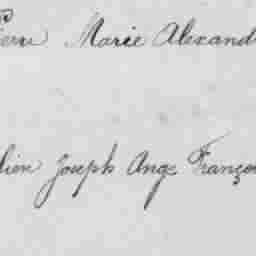 Pierre Marie Alexand
lien Joseph Ange Franço